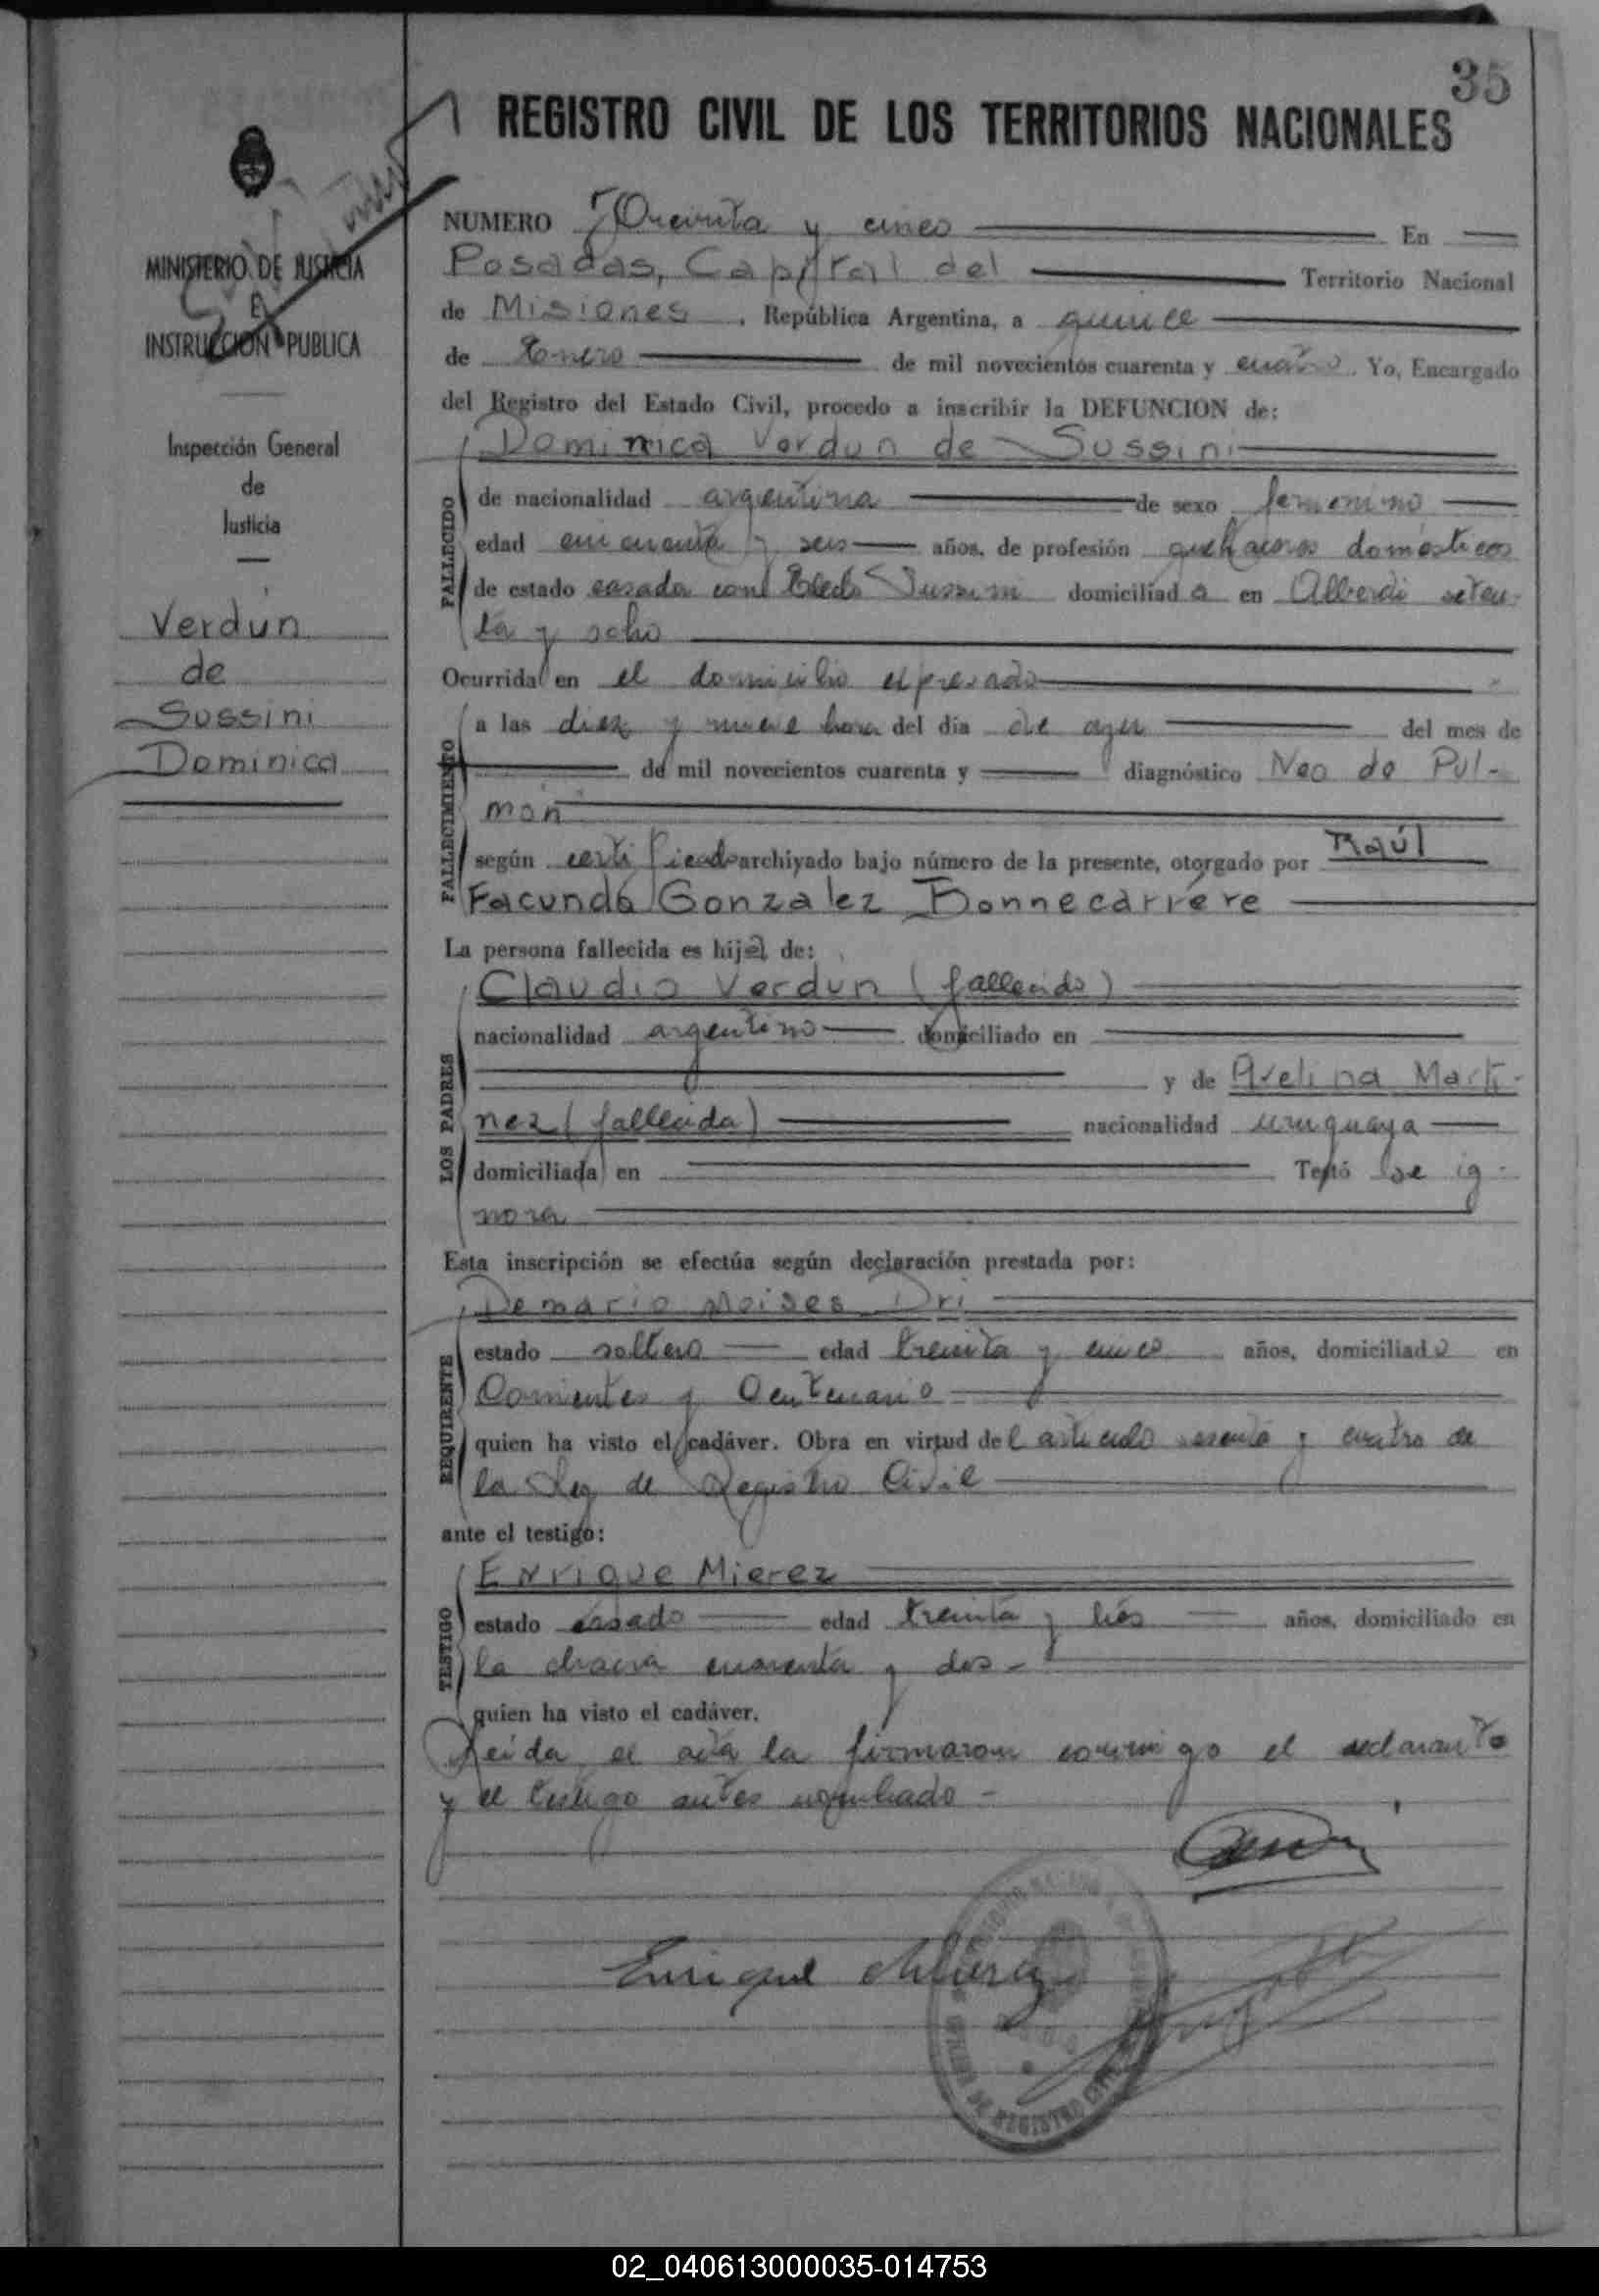 35
REGISTRO CIVIL DE LOS TERRITORIOS NACIONALES
MINISTERIO DE JUSTICIA
E
INSTRUCCION PUBLICA
Inspección General
de
Justicia
Verdún
de
Sussini
Dominica
NUMERO Treinta y cinco En
Posadas, Capital del Territorio Nacional
de Misiones, República Argentina, a quince
de Enero de mil novecientos cuarenta y cuatro. Yo, Encargado
del Registro del Estado Civil, procedo a inscribir la DEFUNCION de:
Dominica Verdun de Sussini
FALLECIDO
de nacionalidad argentina de sexo femenino
edad cincuenta y seis años, de profesión quehaceres domésticos
de estado casada con Sussini domiciliada en Alberdi seten-
ta y ocho
Ocurrida en el domicilio expresado
FALLECIMIENTO
a las diez y nueve horas del día de ayer del mes de
de mil novecientos cuarenta y diagnóstico Neo de Pul-
món
según certificado archivado bajo número de la presente, otorgado por Raúl
Facundo Gonzalez Bonnecarrére
La persona fallecida es hija de:
LOS PADRES
Claudio Verdun (fallecido)
nacionalidad argentino domiciliado en
y de Avelina Marti-
nez (fallecida) nacionalidad uruguaya
domiciliada en Testó se ig-
nora
Esta inscripción se efectúa según declaración prestada por:
REQUIRENTE
Demario Moises Dri
estado soltero edad treinta y cinco años, domiciliado en
Corrientes y Centenario
quien ha visto el cadáver. Obra en virtud del articulo sesenta y cuatro de
la Ley de Registro Civil
ante el testigo:
TESTIGO
Enrique Mierez
estado casado edad treinta y tres años, domiciliado en
la chacra cuarenta y dos -
quien ha visto el cadáver.
Leida el acta la firmaron conmigo el declarante
y el testigo antes nombrado -
Enrique Mierez
DE REGISTRO CIVIL
02_040613000035-014753